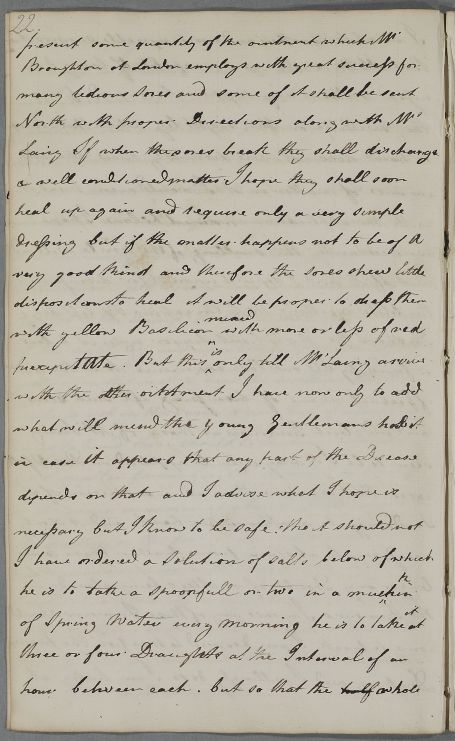 22
present some quantity of the ointment which Mr
Broughton at London employs with great success for
many tedious sores and some of it shall be sent
North with proper Directions along with Mr
Laing If when the sores break they shall discharge
a well conditioned matter I hope they shall soon
heal up again and require only a very simple
dressing but if the matter happens not to be of a
very good kind and therefore the sores shew little
disposition to heal it will be proper to dress them
with yellow Basilicon mixed with more or less of red
precipitate. But this is only till Mr Laing arrives
with the other ointment I have now only to add
what will mend the young Gentlemans habit
in case it appears that any part of the Disease
depends on that and I advise what I hope is
necessary but I know to be safe tho it should not
I have ordered a Solution of salts below of which
he is to take a spoonfull or two in a mutchkin
of Spring Water every morning he is to take it at
three or four Draughts at the Interval of an
hour between each. but so that the half whole